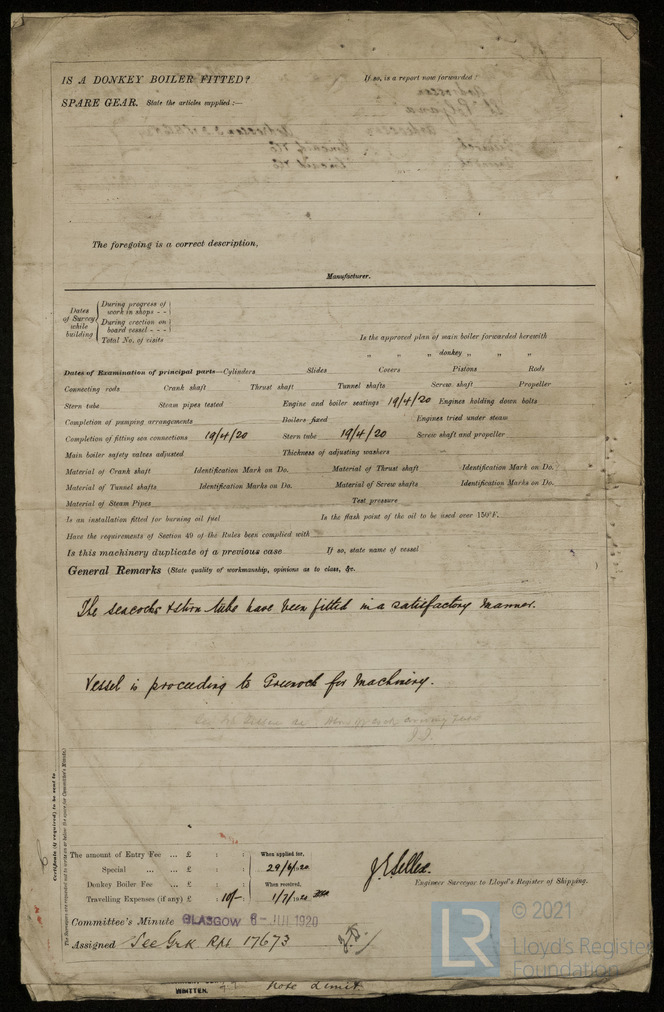 IS A DONKEY BOILER FITTED? If so, is a report now forwarded?
SPARE GEAR. State the articles supplied:—
The foregoing is a correct description,
Manufacturer.
Dates of Survey while building
During progress of work in shops - -
During erection on board vessel - - -
Total No. of visits
Is the approved plan of main boiler forwarded herewith
" " " donkey " " "
Dates of Examination of principal parts—Cylinders Slides Covers Pistons Rods
Connecting rods Crank shaft Thrust shaft Tunnel shafts Screw shaft Propeller
Stern tube Steam pipes tested Engine and boiler seatings 19/4/20 Engines holding down bolts
Completion of pumping arrangements Boilers fixed Engines tried under steam
Completion of fitting sea connections 19/4/20 Stern tube 19/4/20 Screw shaft and propeller
Main boiler safety valves adjusted Thickness of adjusting washers
Material of Crank shaft Identification Mark on Do. Material of Thrust shaft Identification Mark on Do.
Material of Tunnel shafts Identification Marks on Do. Material of Screw shafts Identification Marks on Do.
Material of Steam Pipes Test pressure
Is an installation fitted for burning oil fuel Is the flash point of the oil to be used over 150°F.
Have the requirements of Section 49 of the Rules been complied with
Is this machinery duplicate of a previous case If so, state name of vessel
General Remarks (State quality of workmanship, opinions as to class, &c.
The seacocks & stern tube have been fitted in a satisfactory manner.
Vessel is proceeding to Greenock for Machinery.
Certificate (if required) to be sent to
The amount of Entry Fee ... £ : : When applied for,
Special ... ... £ : : 29/6/20
Donkey Boiler Fee ... £ : : When received,
Travelling Expenses (if any) £ : 10/- : 1/7/1920
Engineer Surveyor to Lloyd's Register of Shipping.
Committee's Minute GLASGOW 6 - JUL 1920
Assigned See Grk. Rpt. 17673
© 2021
LR Lloyd's Register
Foundation
WRITTEN.